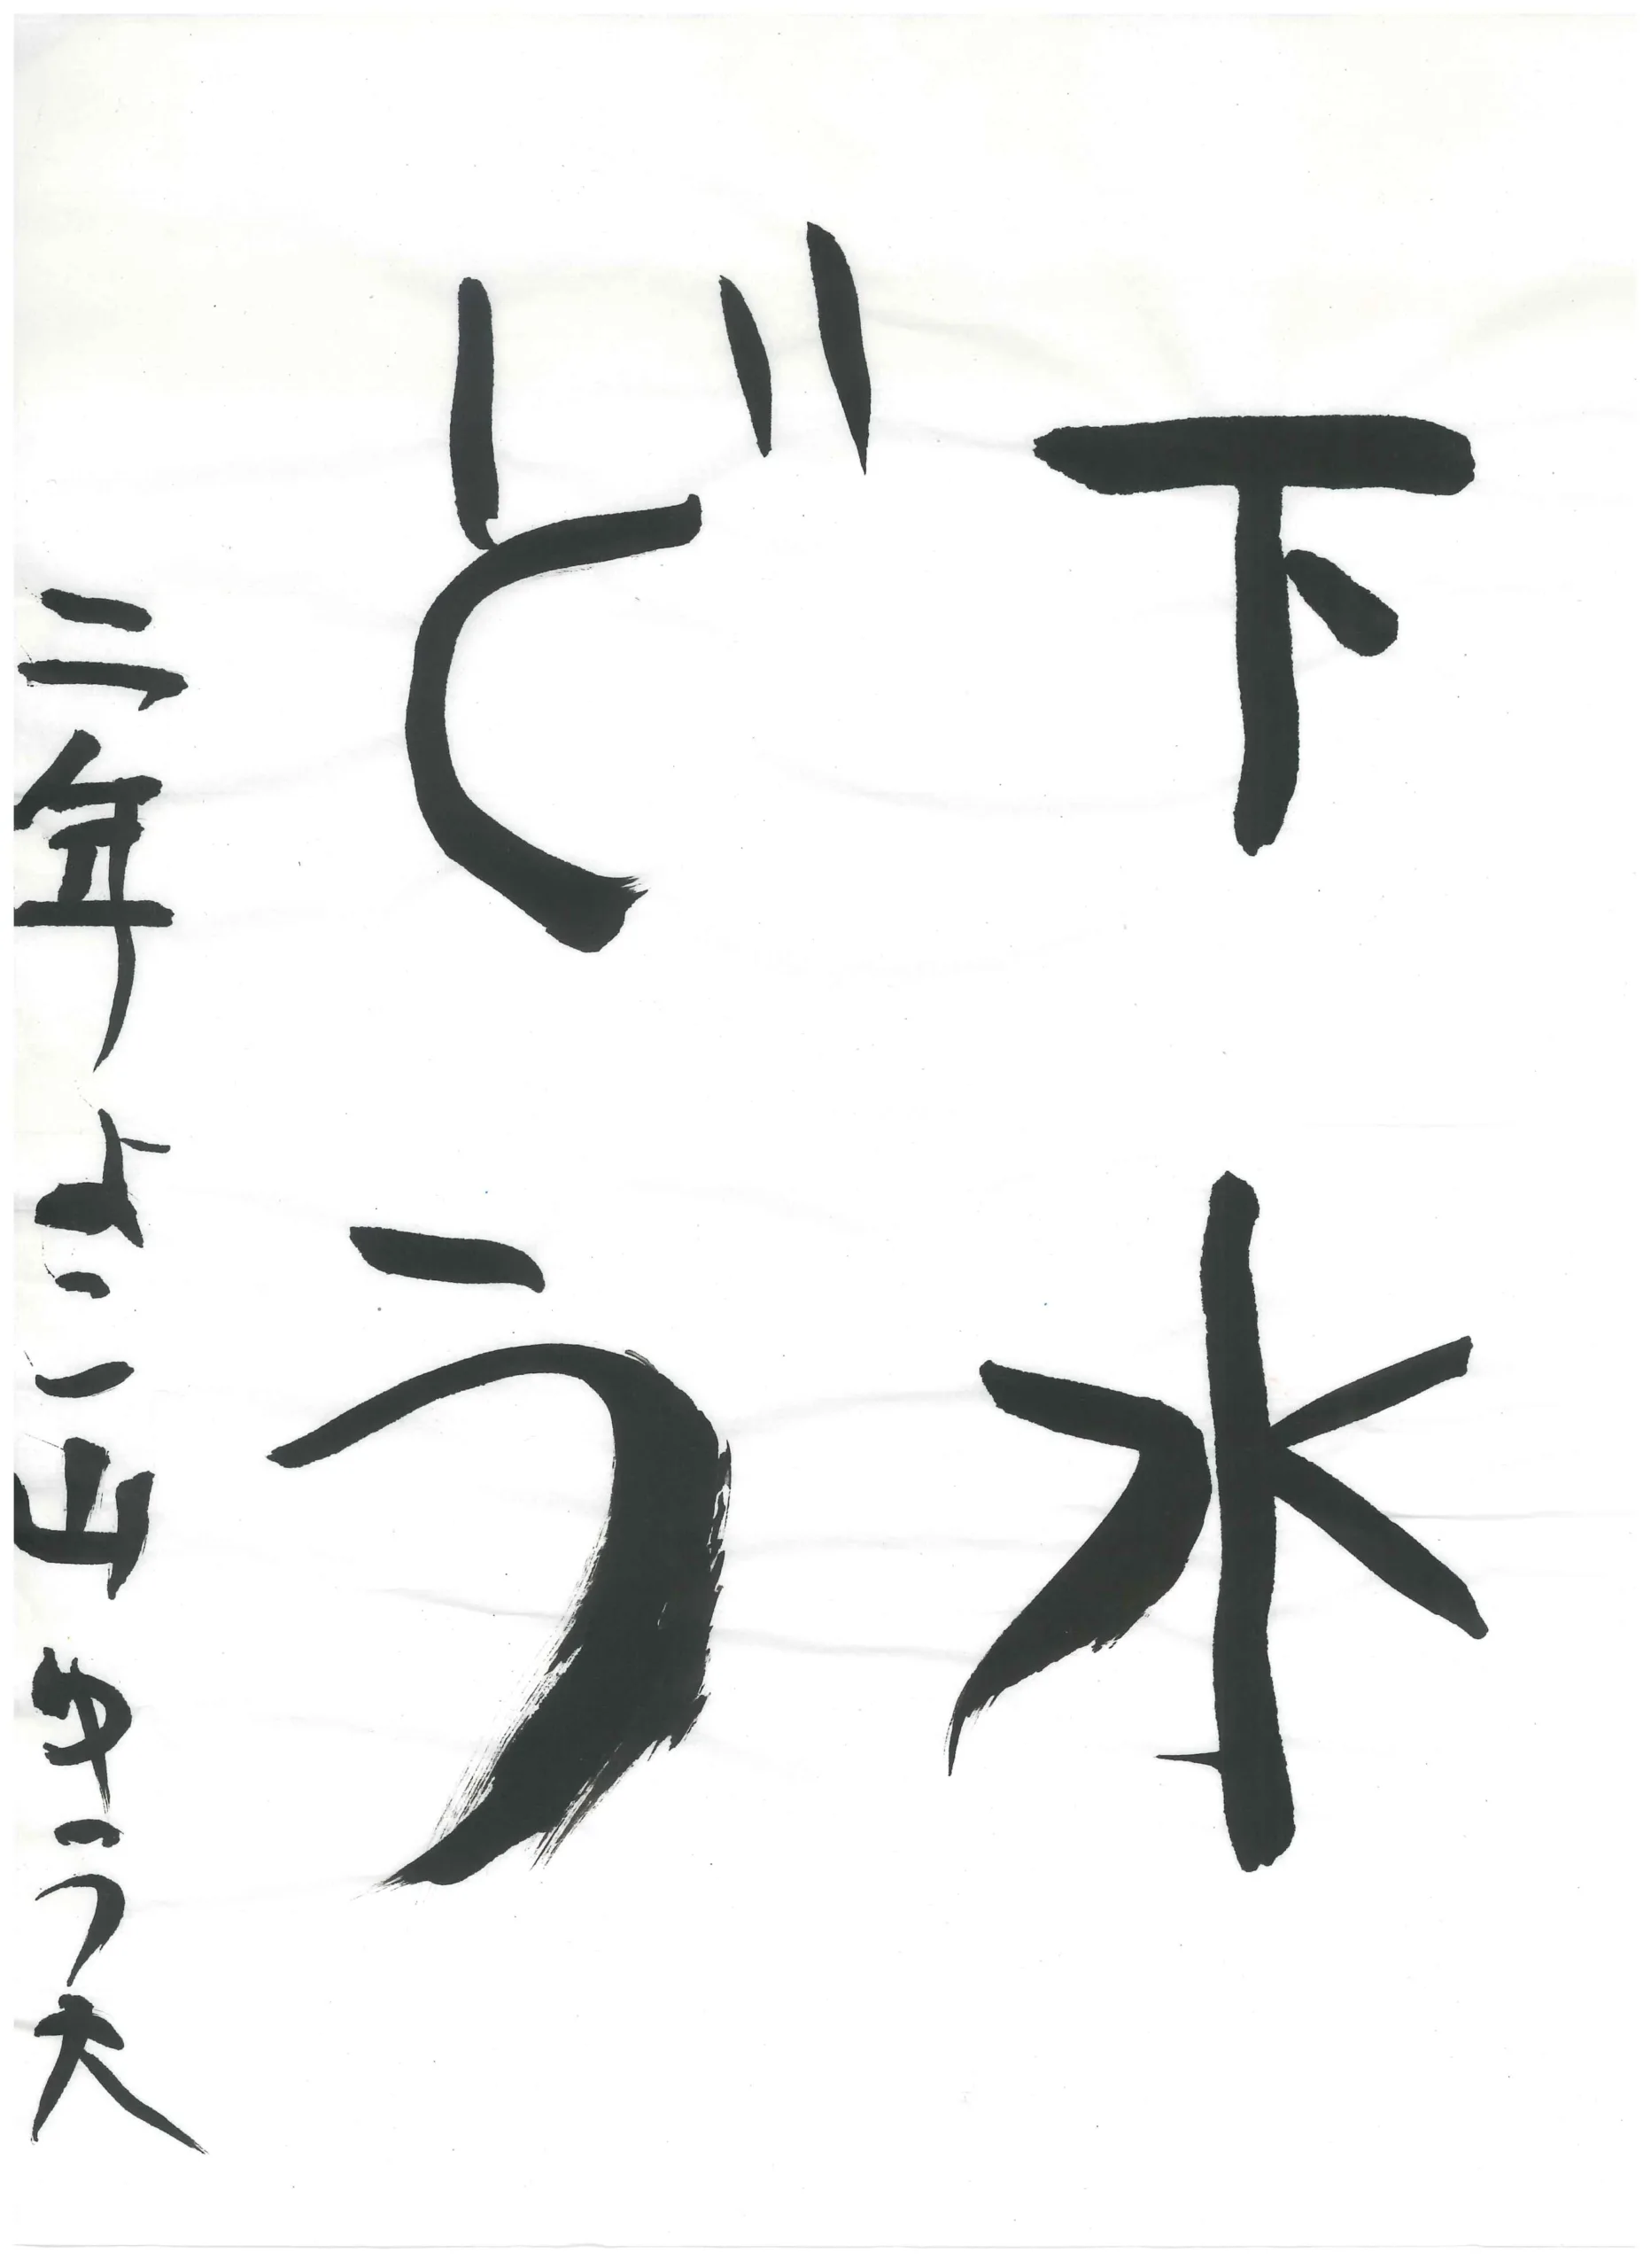 下水
どう
二年よこ山ゆう大